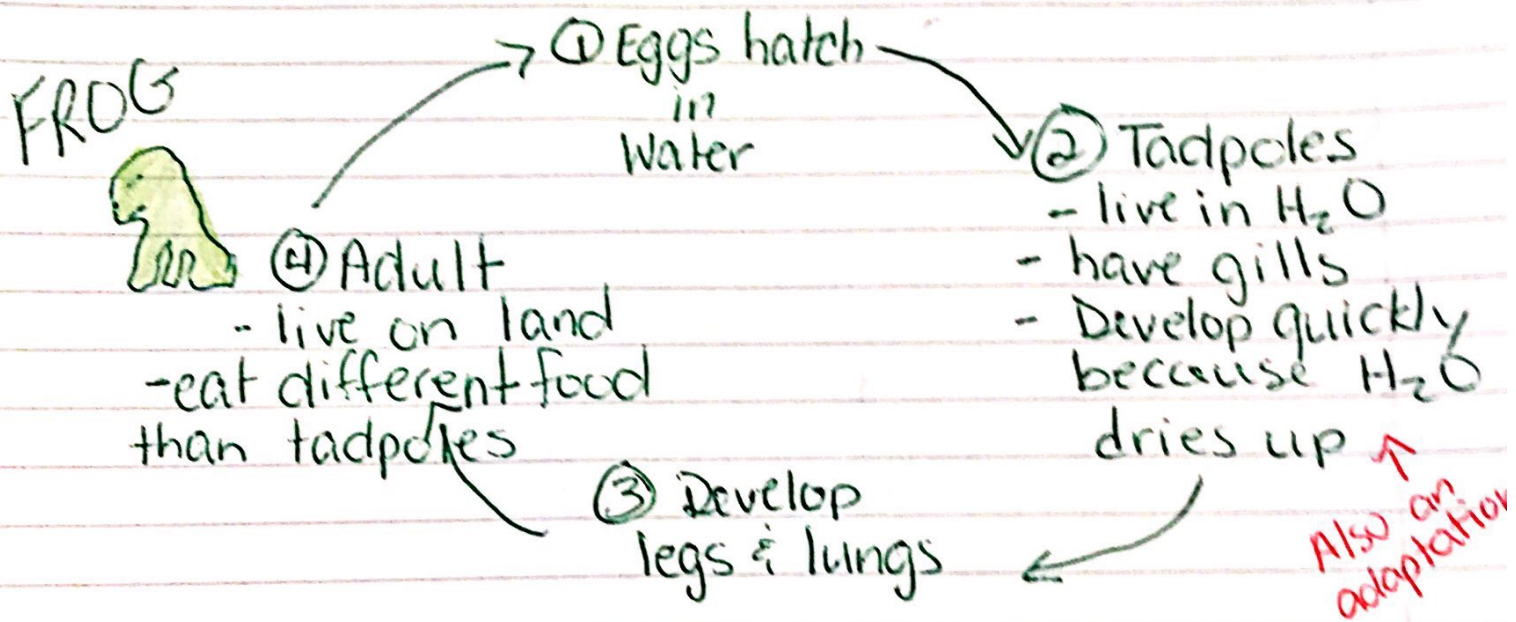 FROG
① Eggs hatch
in
Water
② Tadpoles
- live in H₂O
- have gills
- Develop quickly
beccause H₂O
dries up
Also an
adaptation
③ Develop
legs & lungs
④ Adult
- live on land
- eat different food
than tadpoles